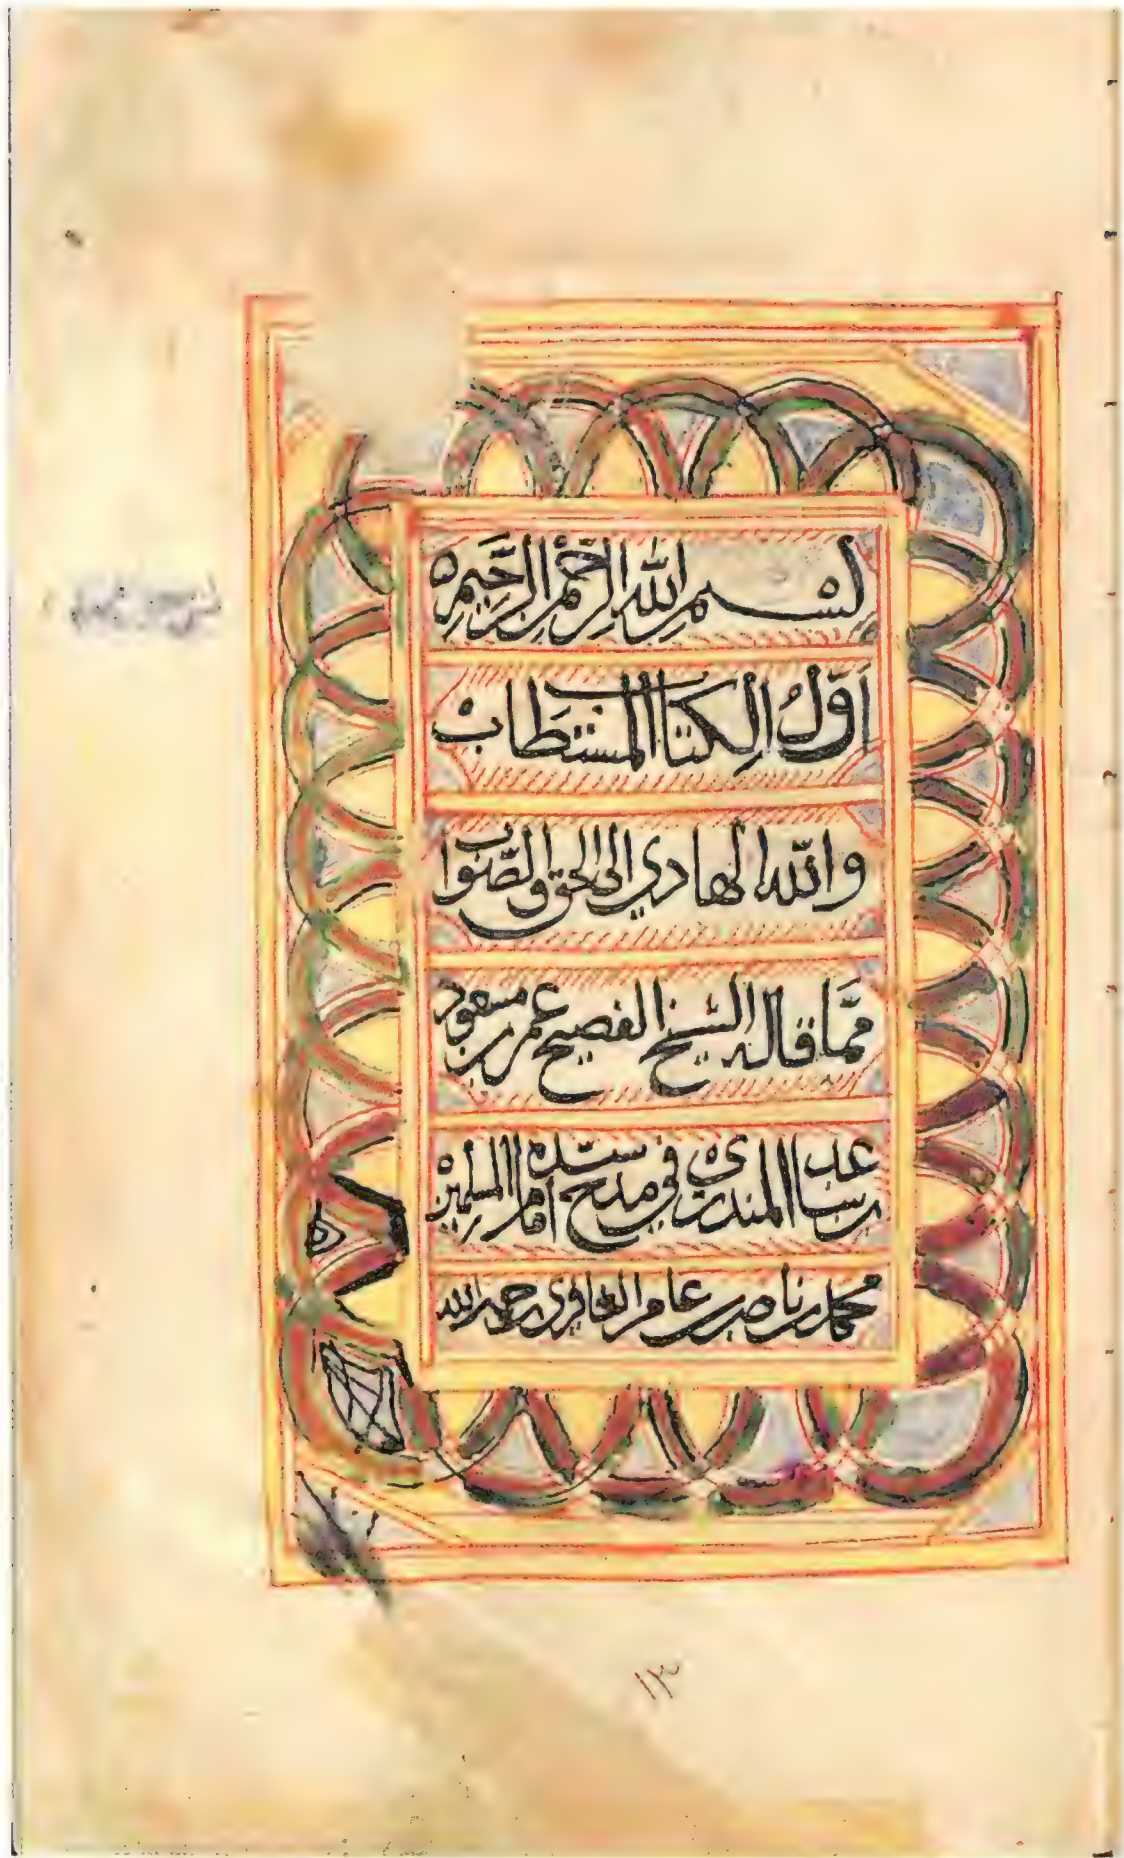 بسم الله الرَّحْمٰن الرَّحِيم
اَوَّلُ الكتاب المستطاب
والله الهادي الى الحق والصَّواب
ممَّا قاله الشيخ الفصيح عمر بن مسعود
بن ساعد المنذري في مدح سيّده امام المسلمين
محمد بن ناصر بن عامر الغافري رحمه الله
١٣